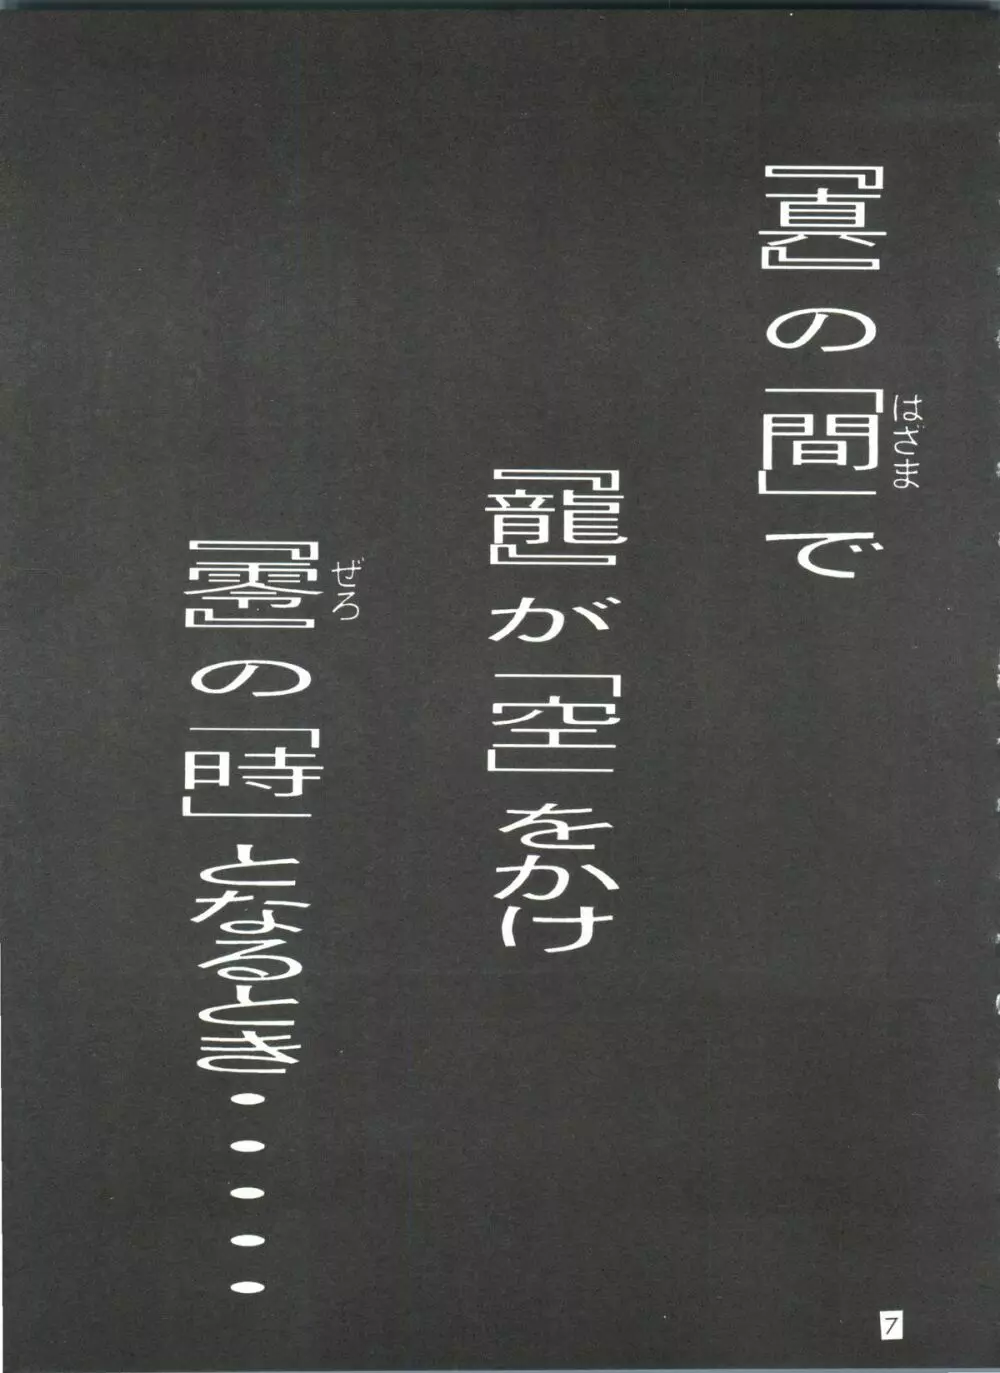 『真』の「間」で
はざま
『龍』が「空」をかけ
『零』の「時」となるとき・・・・・
ぜろ
7